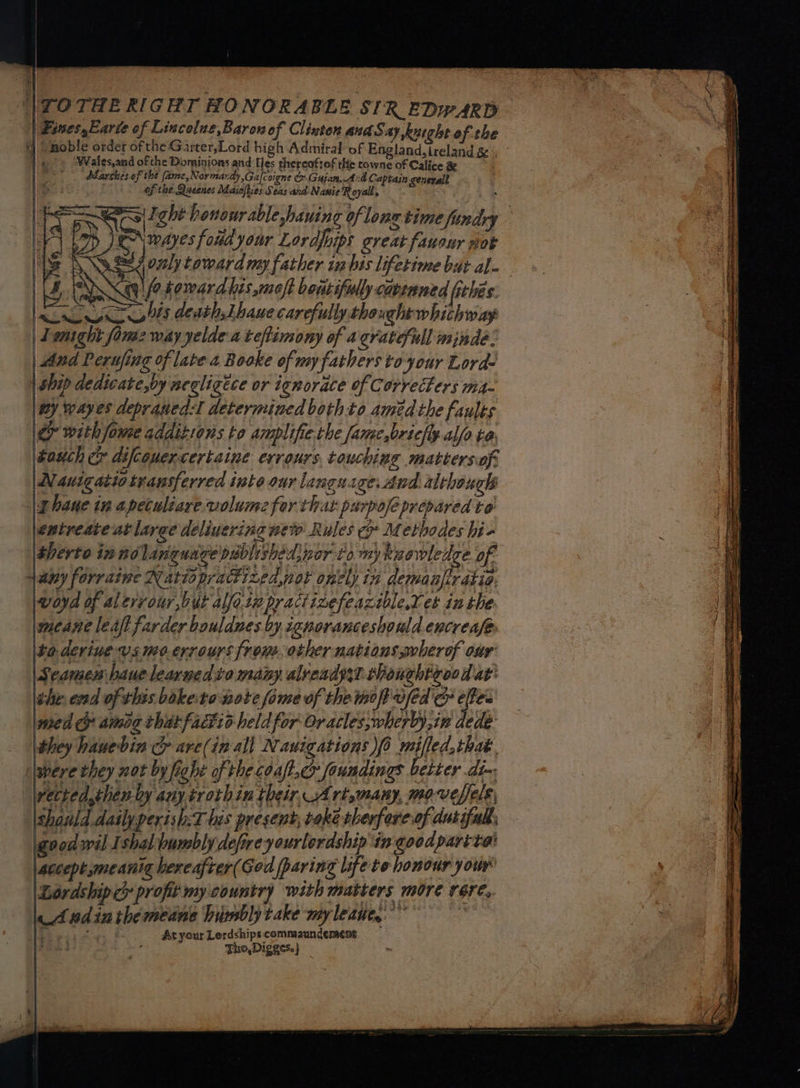 TO THE RIGHT HONORABLE SIR EDWARD
Fines, Earle of Lincolne, Baron of Clinton and Say, knight of the
noble order of the Garter, Lord high Admiral of England, Ireland &
Wales, and of the Dominions and Iles thereof, of the towne of Calice &
Marches of the same, Normandy, Gascoigne & Guian. And Captain generall
of the Queenes Maiesties Seas and Nauie Royall,
Right honourable, hauing of long time sundry
wayes foūd your Lordships great fauour not
only toward my father in his lifetime but al-
so toward his, most boūtifully cōtinued sithēs
his death, I haue carefully thought which way
I might some way yelde a testimony of a gratefull minde.
And Perusing of late a Booke of my fathers to your Lord-
ship dedicate, by negligēce or ignorāce of Correcters ma-
ny wayes depraued: I determined both to amēd the faults
& with some additions to amplifie the same, briefly also to
touch & discouer certaine errours touching matters of
Nauigatiō transferred into our language. And although
I haue in a peculiare volume for that purpose prepared to
entreate at large deliuering new Rules & Methodes hi-
therto in no language published, nor to my knowledge of
any forraine Natiō practized, not onely in demanstratiō,
voyd of al errour, but also in practize feazible. Yet in the
meane least farder bouldnes by ignorance should encrease
to deriue vs mo errours from other nations, wherof our
Seamen haue learned to many already: I thought good at
the end of this boke to note some of the most vsed & estee
med & amōg that factiō held for Oracles, wherby, in dede
they haue bin & are (in all Nauigations) so misled, that
were they not by sight of the coast, & soundings better di-
rected, then by any troth in their Art, many mo vessels,
should daily perish. This present, tokē therfore of dutifull
good wil I shal humbly desire your lordship in good part to
accept, meanīg hereafter (God sparing life to honour your
Lordship & profit my country with matters more rare,
And in the meane humbly take my leaue,
At your Lordships commaundement
Tho, Digges.}